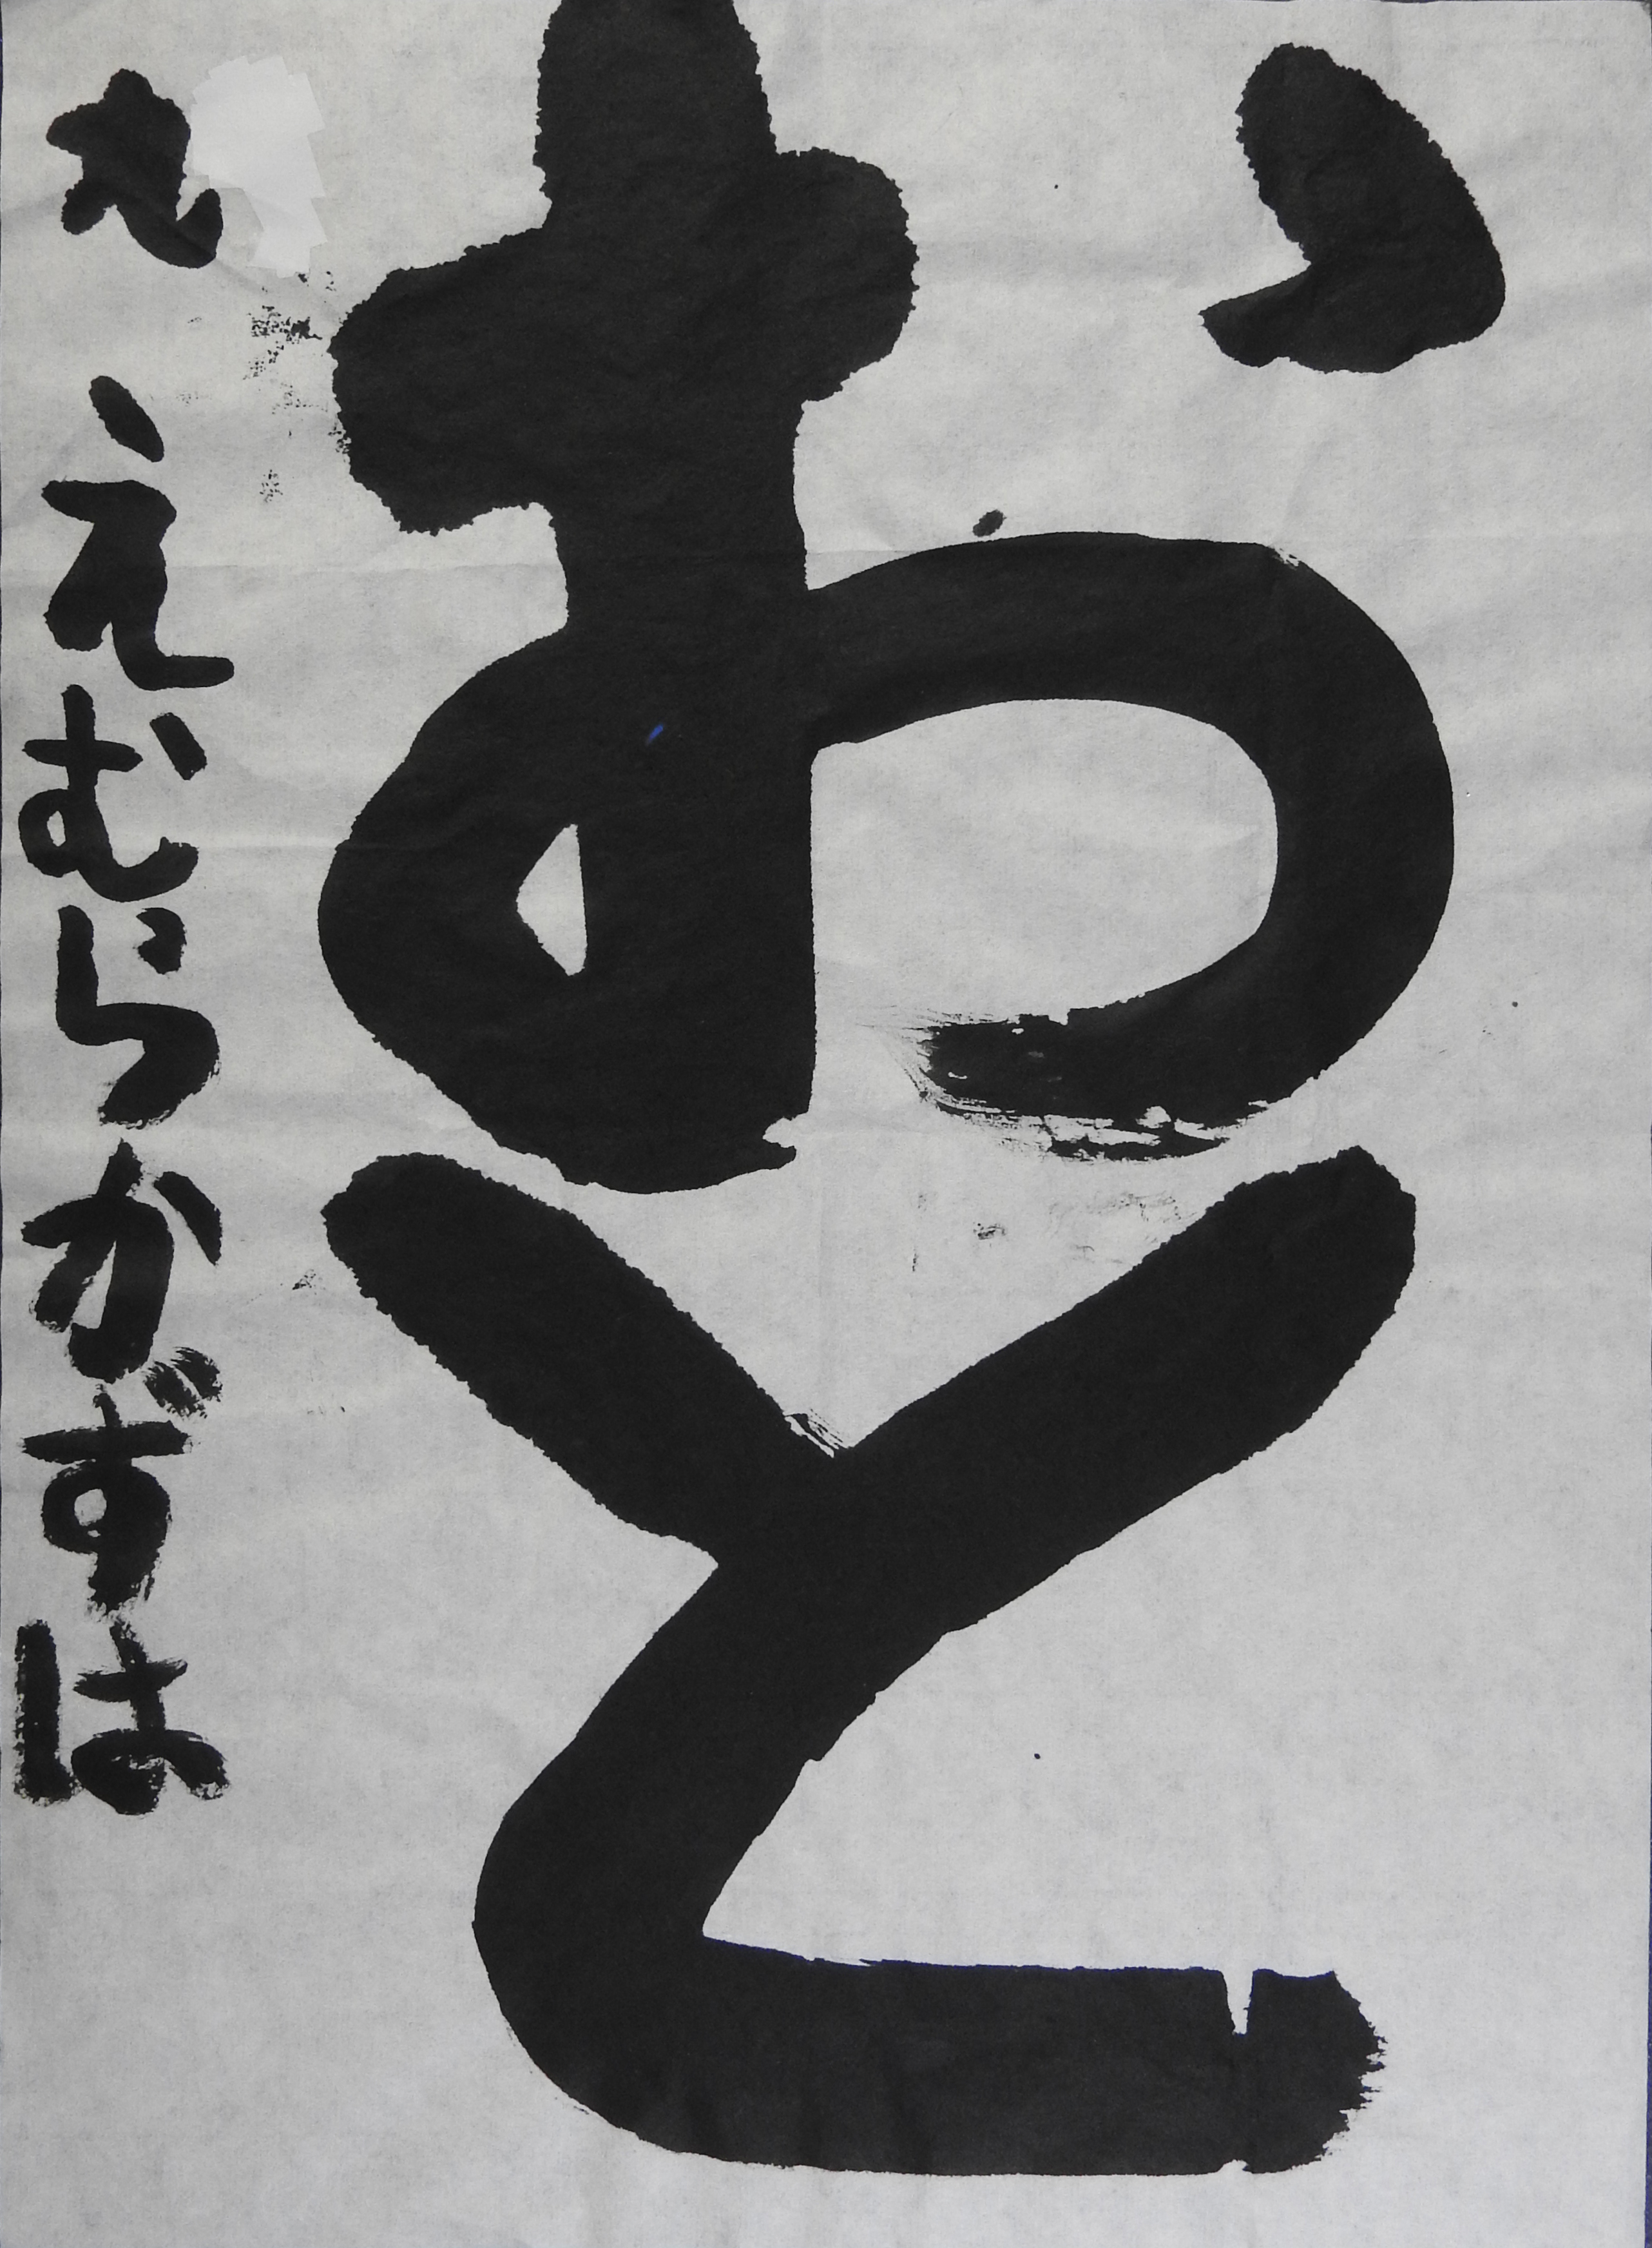 おと
えむらかずは